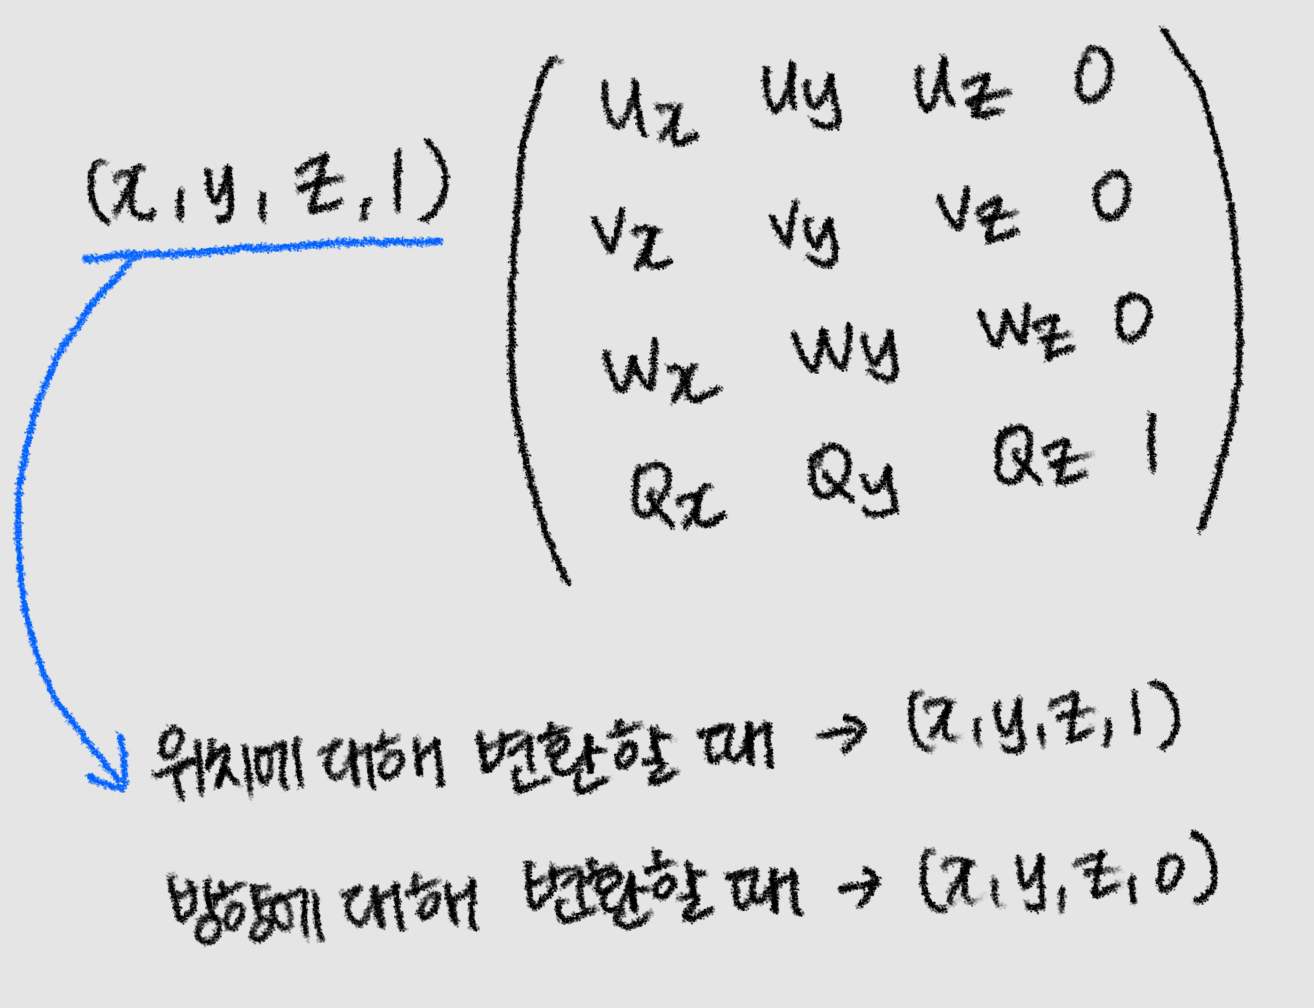 (x, y, z, 1)
ux uy uz 0
vx vy vz 0
wx wy wz 0
Qx Qy Qz 1
위치에 대해 변환할 때 → (x, y, z, 1)
방향에 대해 변환할 때 → (x, y, z, 0)